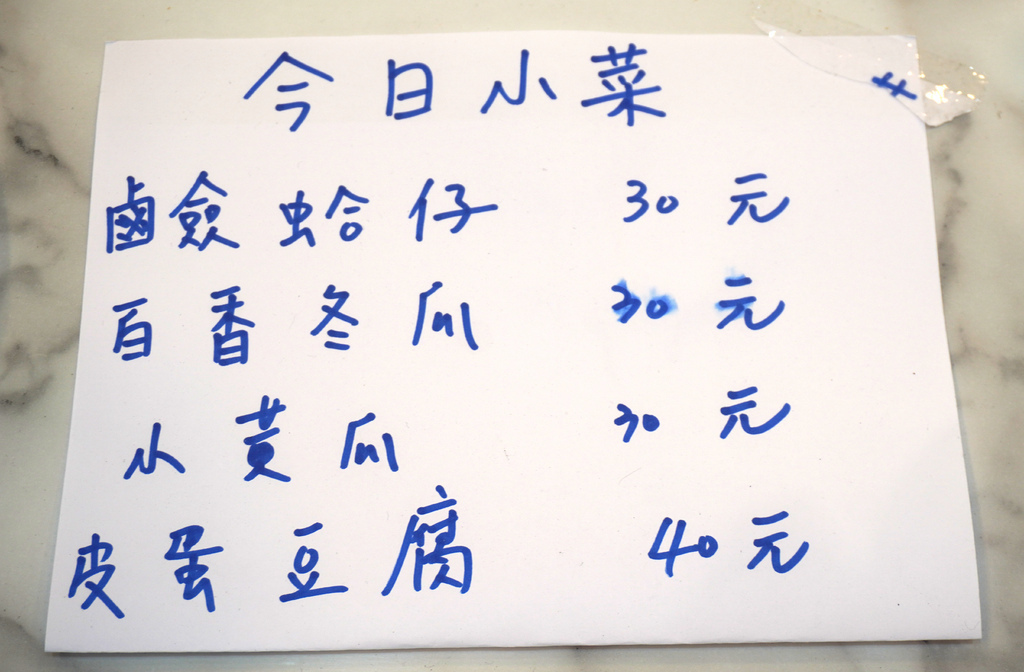 今日小菜
鹹蜆蛤仔 30元
百香冬瓜 30元
小黄瓜 30元
皮蛋豆腐 40元